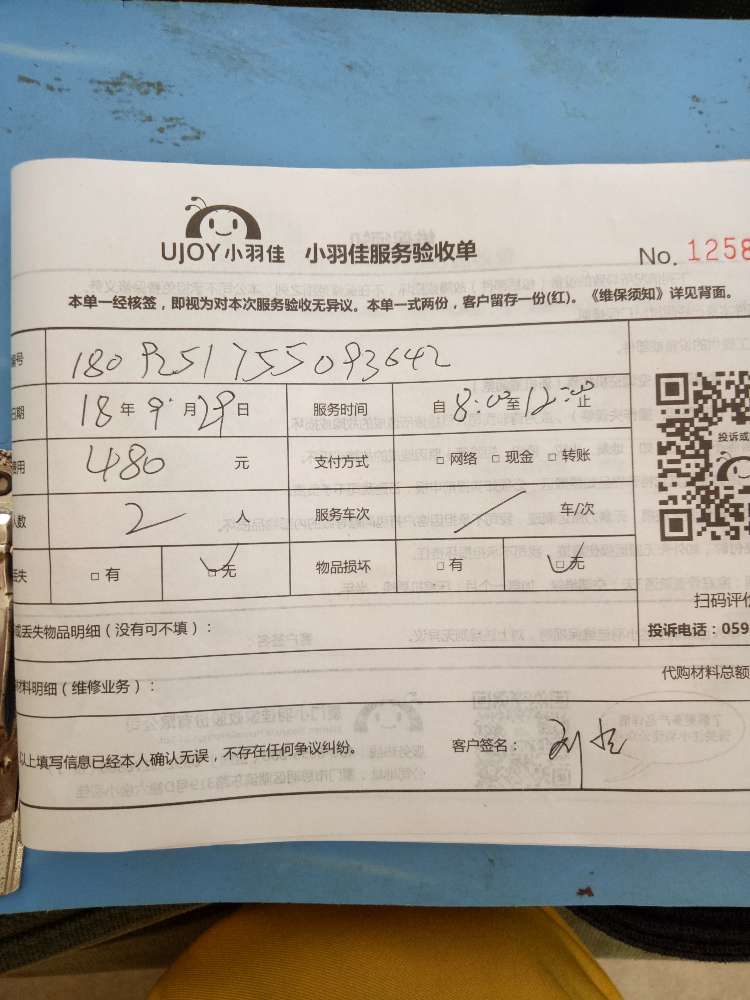 UJOY小羽佳 小羽佳服务验收单 No. 1258
本单一经核签，即视为对本次服务验收无异议。本单一式两份，客户留存一份(红)。《维保须知》详见背面。
号 1809251755093642
日期 18 年 9 月 29 日 服务时间 自 8:00 至 12:00 止
费用 480 元 支付方式 □ 网络 □ 现金 □ 转账
人数 2 人 服务车次 / 车/次
丢失 □ 有 □ 无 物品损坏 □ 有 □ 无
投诉或
扫码评价
或丢失物品明细（没有可不填）： 投诉电话：059
材料明细（维修业务）： 代购材料总额
以上填写信息已经本人确认无误，不存在任何争议纠纷。 客户签名：